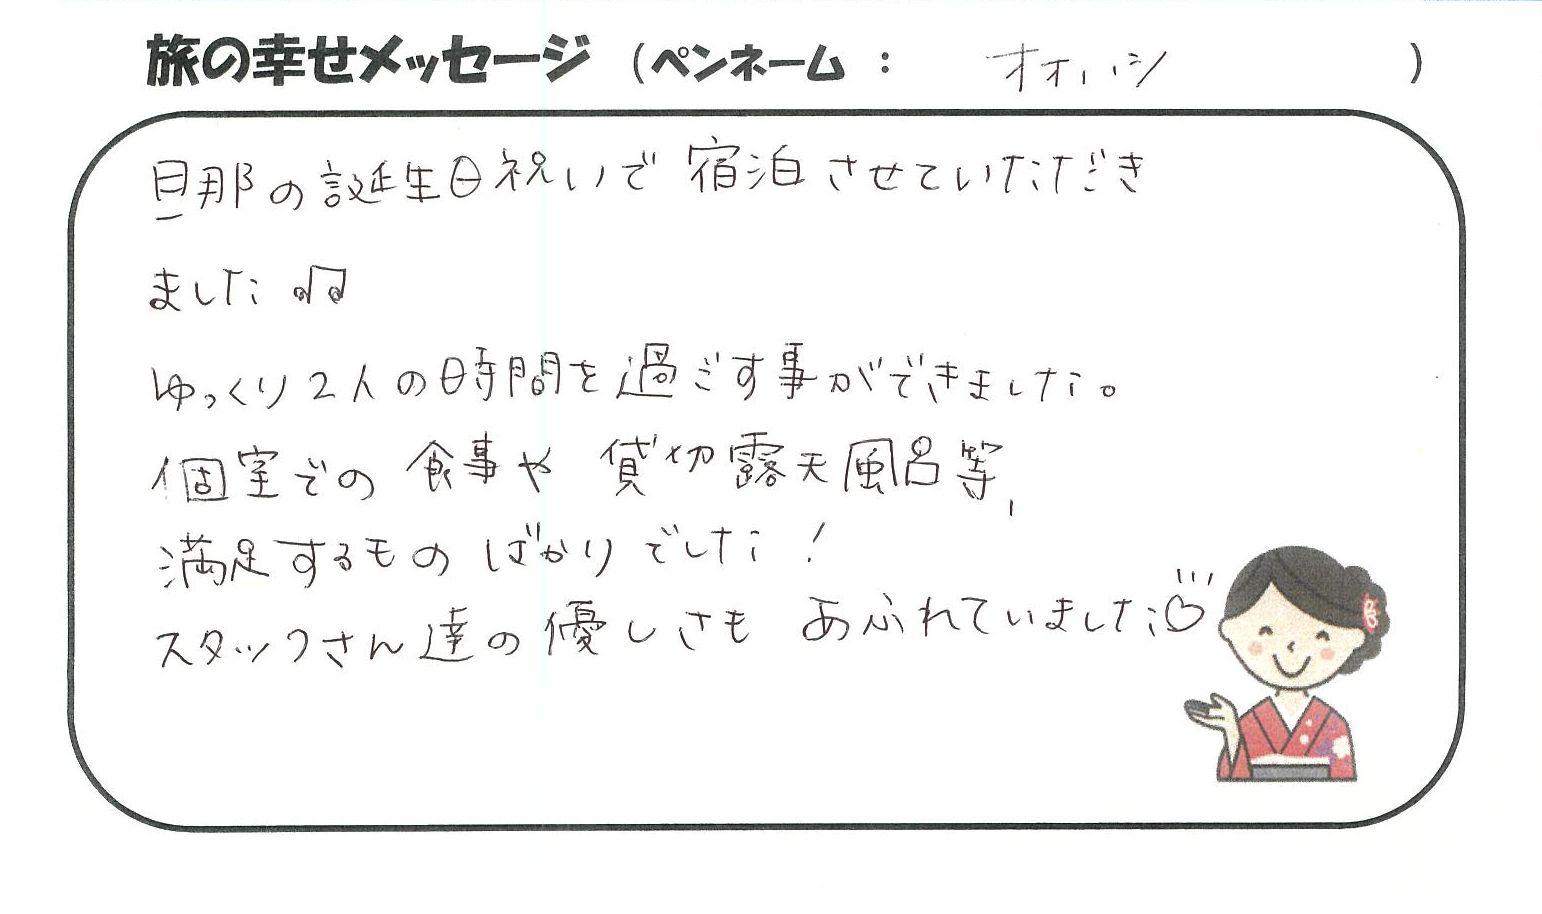 旅の幸せメッセージ (ペンネーム : オオハシ )
旦那の誕生日祝いで 宿泊させていただき
ました ♫
ゆっくり2人の時間を過ごす事ができました。
個室での 食事や 貸切露天風呂等、
満足するもの ばかりでした!
スタッフさん達の優しさも あふれていました♡